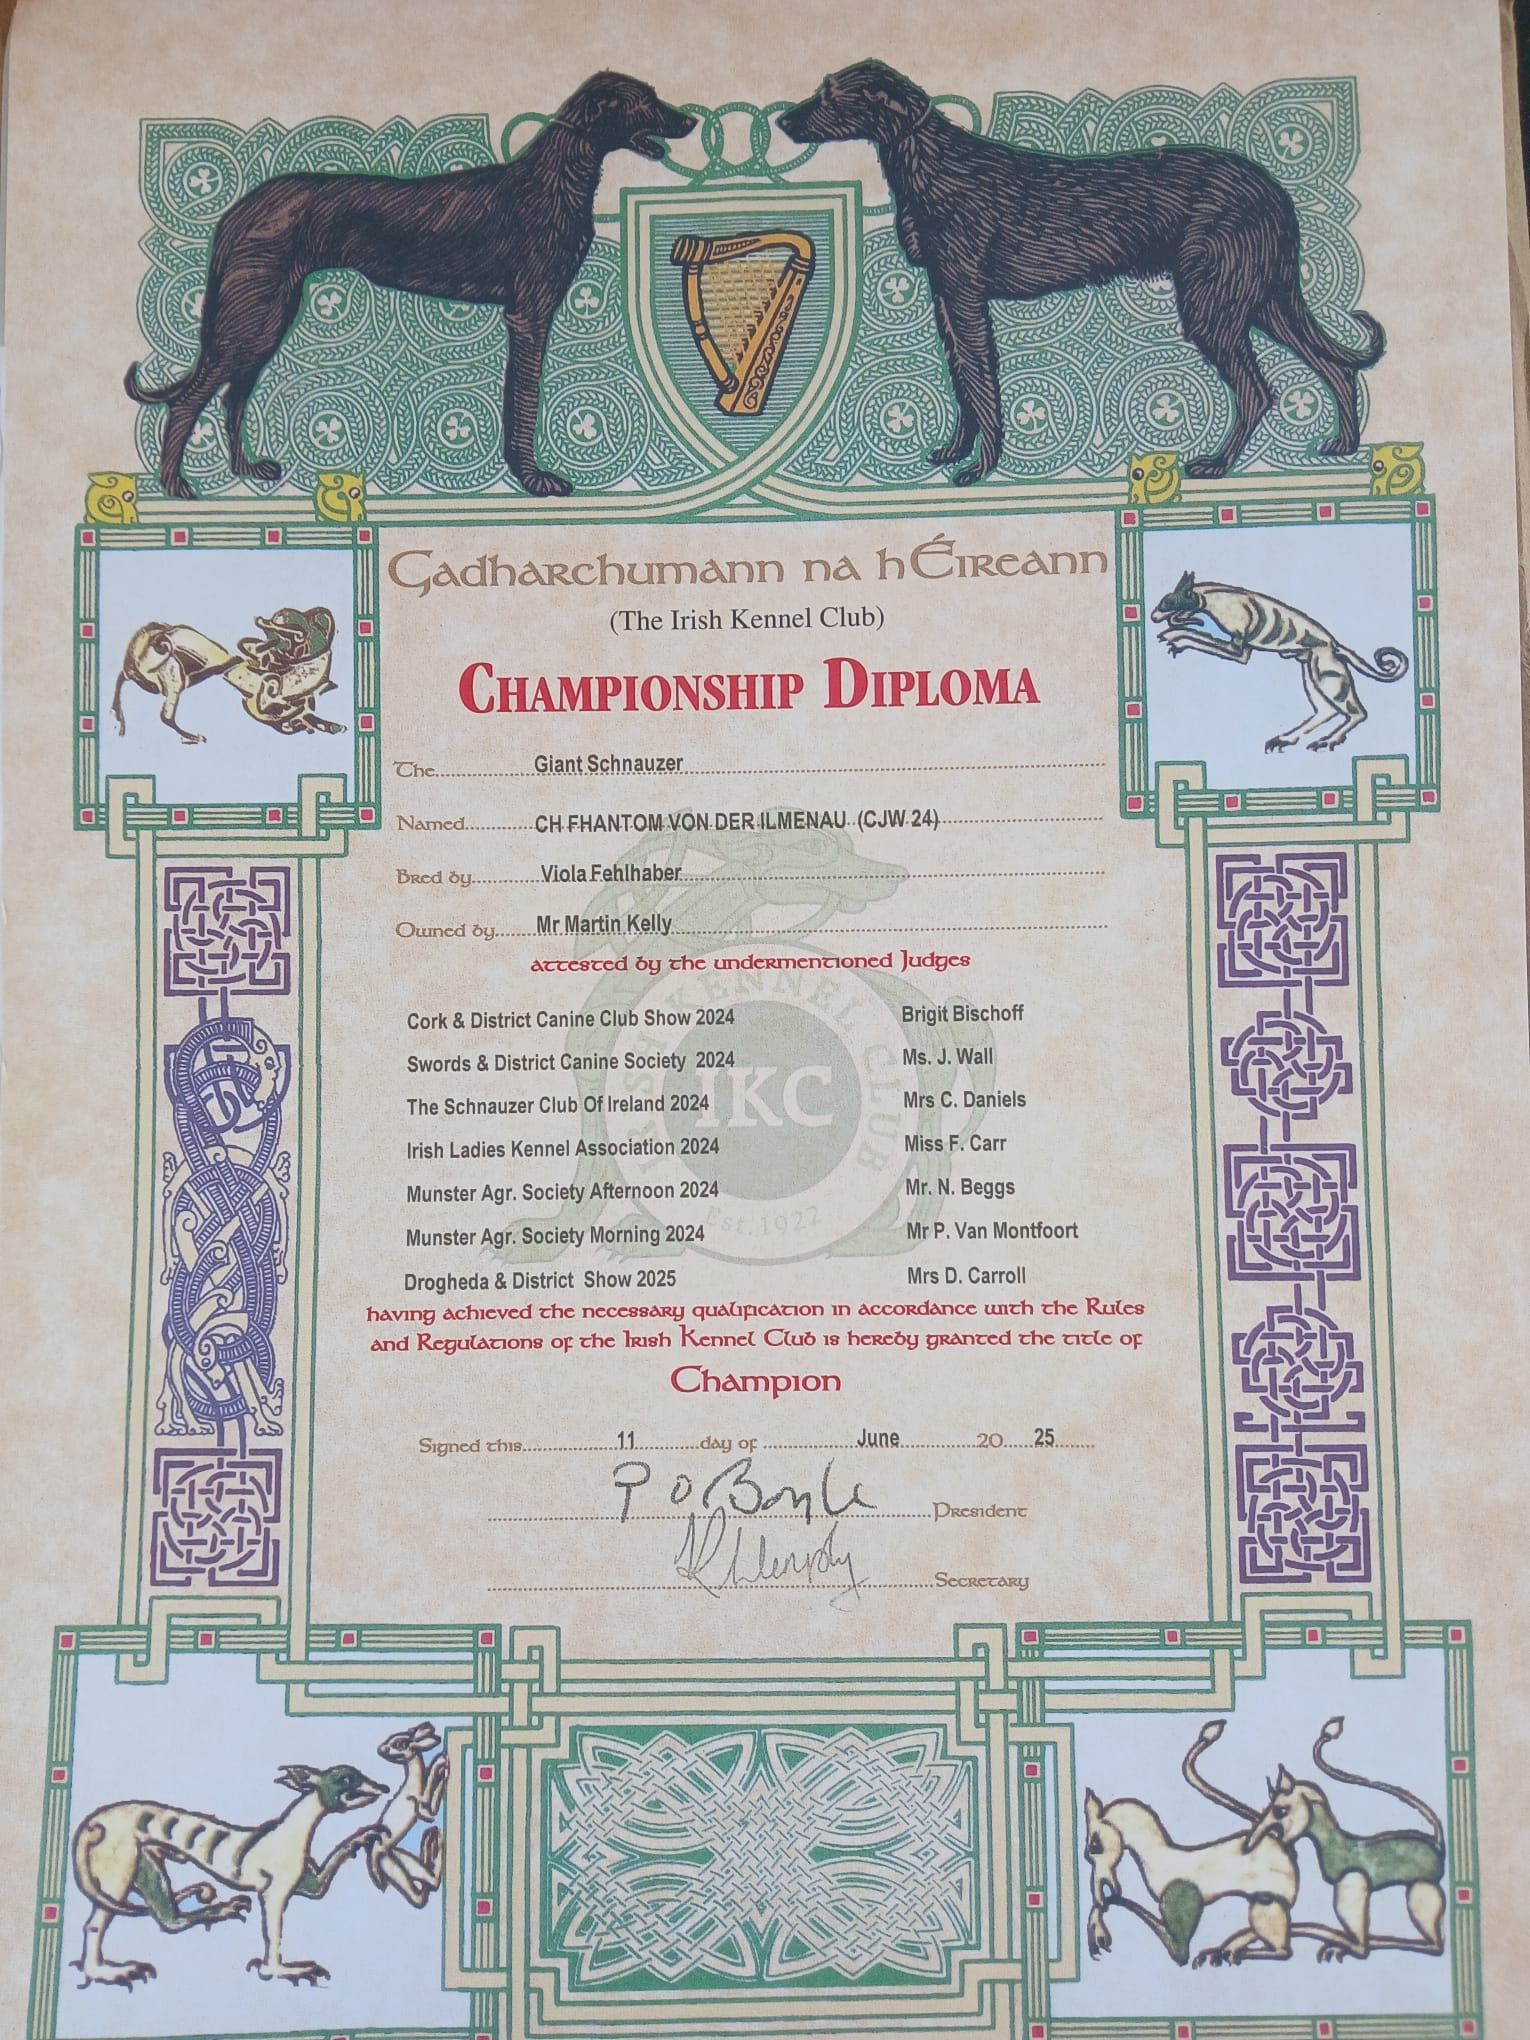 Gadharchumann na hÉireann
(The Irish Kennel Club)
Championship Diploma
The Giant Schnauzer
Named CH FHANTOM VON DER ILMENAU (CJW 24)
Bred by Viola Fehlhaber
Owned by Mr Martin Kelly
attested by the undermentioned Judges
Cork & District Canine Club Show 2024 Brigit Bischoff
Swords & District Canine Society 2024 Ms. J. Wall
The Schnauzer Club Of Ireland 2024 Mrs C. Daniels
Irish Ladies Kennel Association 2024 Miss F. Carr
Munster Agr. Society Afternoon 2024 Mr. N. Beggs
Munster Agr. Society Morning 2024 Mr P. Van Montfoort
Drogheda & District Show 2025 Mrs D. Carroll
having achieved the necessary qualification in accordance with the Rules
and Regulations of the Irish Kennel Club is hereby granted the title of
Champion
Signed this 11 day of June 20 25
President
Secretary
IRISH KENNEL CLUB
IKC
Est. 1922